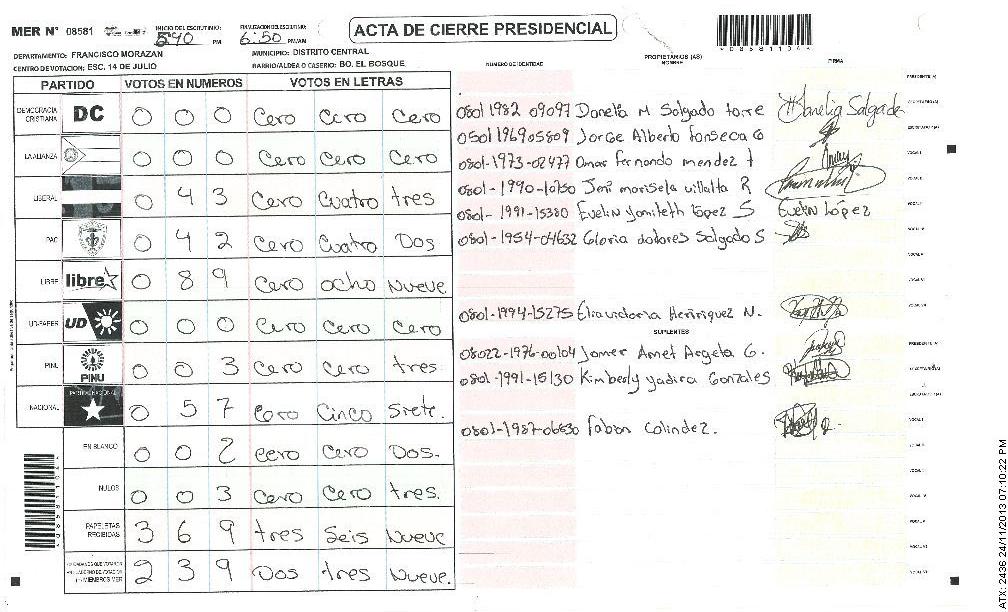 MER N° 08581
INICIO DEL ESCRUTINIO: 5:40 PM
FINALIZACION DEL ESCRUTINIO: 6:50 PM/AM
ACTA DE CIERRE PRESIDENCIAL
DEPARTAMENTO: FRANCISCO MORAZAN
MUNICIPIO: DISTRITO CENTRAL
CENTRO DE VOTACION: ESC. 14 DE JULIO
BARRIO/ALDEA O CASERIO: BO. EL BOSQUE
NUMERO DE IDENTIDAD
PROPIETARIOS (AS)
NOMBRE
FIRMA
PARTIDO VOTOS EN NUMEROS VOTOS EN LETRAS
DEMOCRACIA CRISTIANA DC 0 0 0 Cero Cero Cero
LA ALIANZA 0 0 0 Cero Cero Cero
LIBERAL 0 4 3 Cero Cuatro tres
PAC 0 4 2 Cero Cuatro Dos
LIBRE libre 0 8 9 Cero ocho Nueve
UD-FAPER UD 0 0 0 Cero Cero Cero
PINU PINU 0 0 3 Cero Cero tres
NACIONAL PARTIDO NACIONAL 0 5 7 Cero Cinco Siete.
EN BLANCO 0 0 2 Cero Cero Dos.
NULOS 0 0 3 Cero Cero tres.
PAPELETAS RECIBIDAS 3 6 9 tres Seis Nueve
2 3 9 Dos tres Nueve.
0801 1982 09097 Danelia M Salgado torre Danelia Salgado
0501 196905809 Jorge Alberto Fonseca G
0801-1973-02477 Omar Fernando mendez t
0801-1990-10750 Jeni marisela villalta R
0801-1991-15380 Evelin Yamileth López S Evelin López
0801-1954-04632 Gloria dolores Salgado S
0801-1994-15275 Henriquez N.
SUPLENTES
08022-1976-00104 Jamer Amet Argeta G.
0801-1991-15130 Kimberly yadira Gonzales
0801-1987-06530 Fabian Galindez.
ATX: 2436 24/11/2013 07:10:22 PM